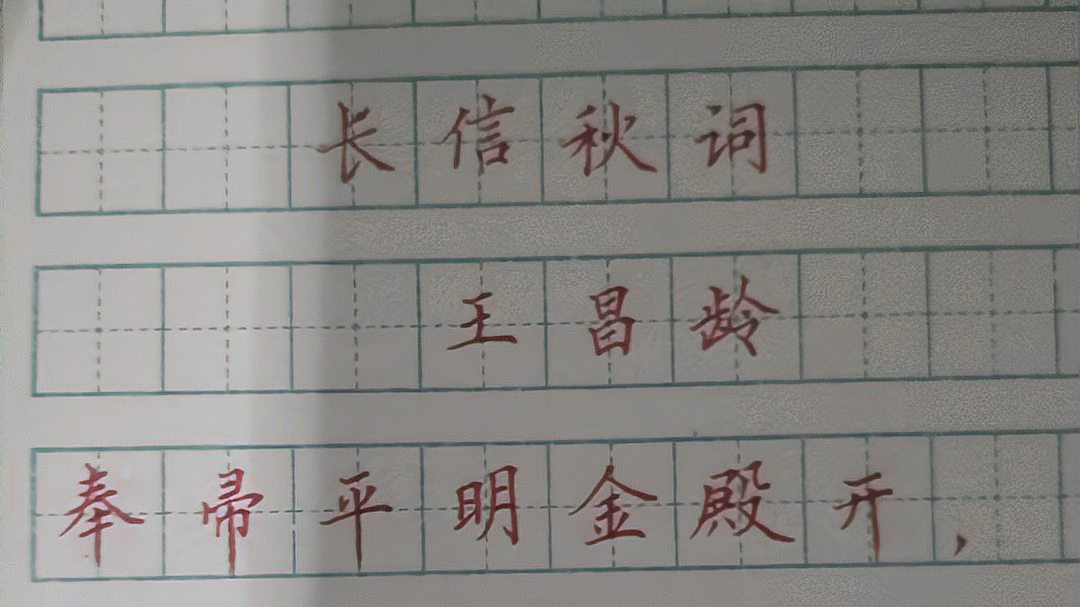 长信秋词
王昌龄
奉帚平明金殿开，